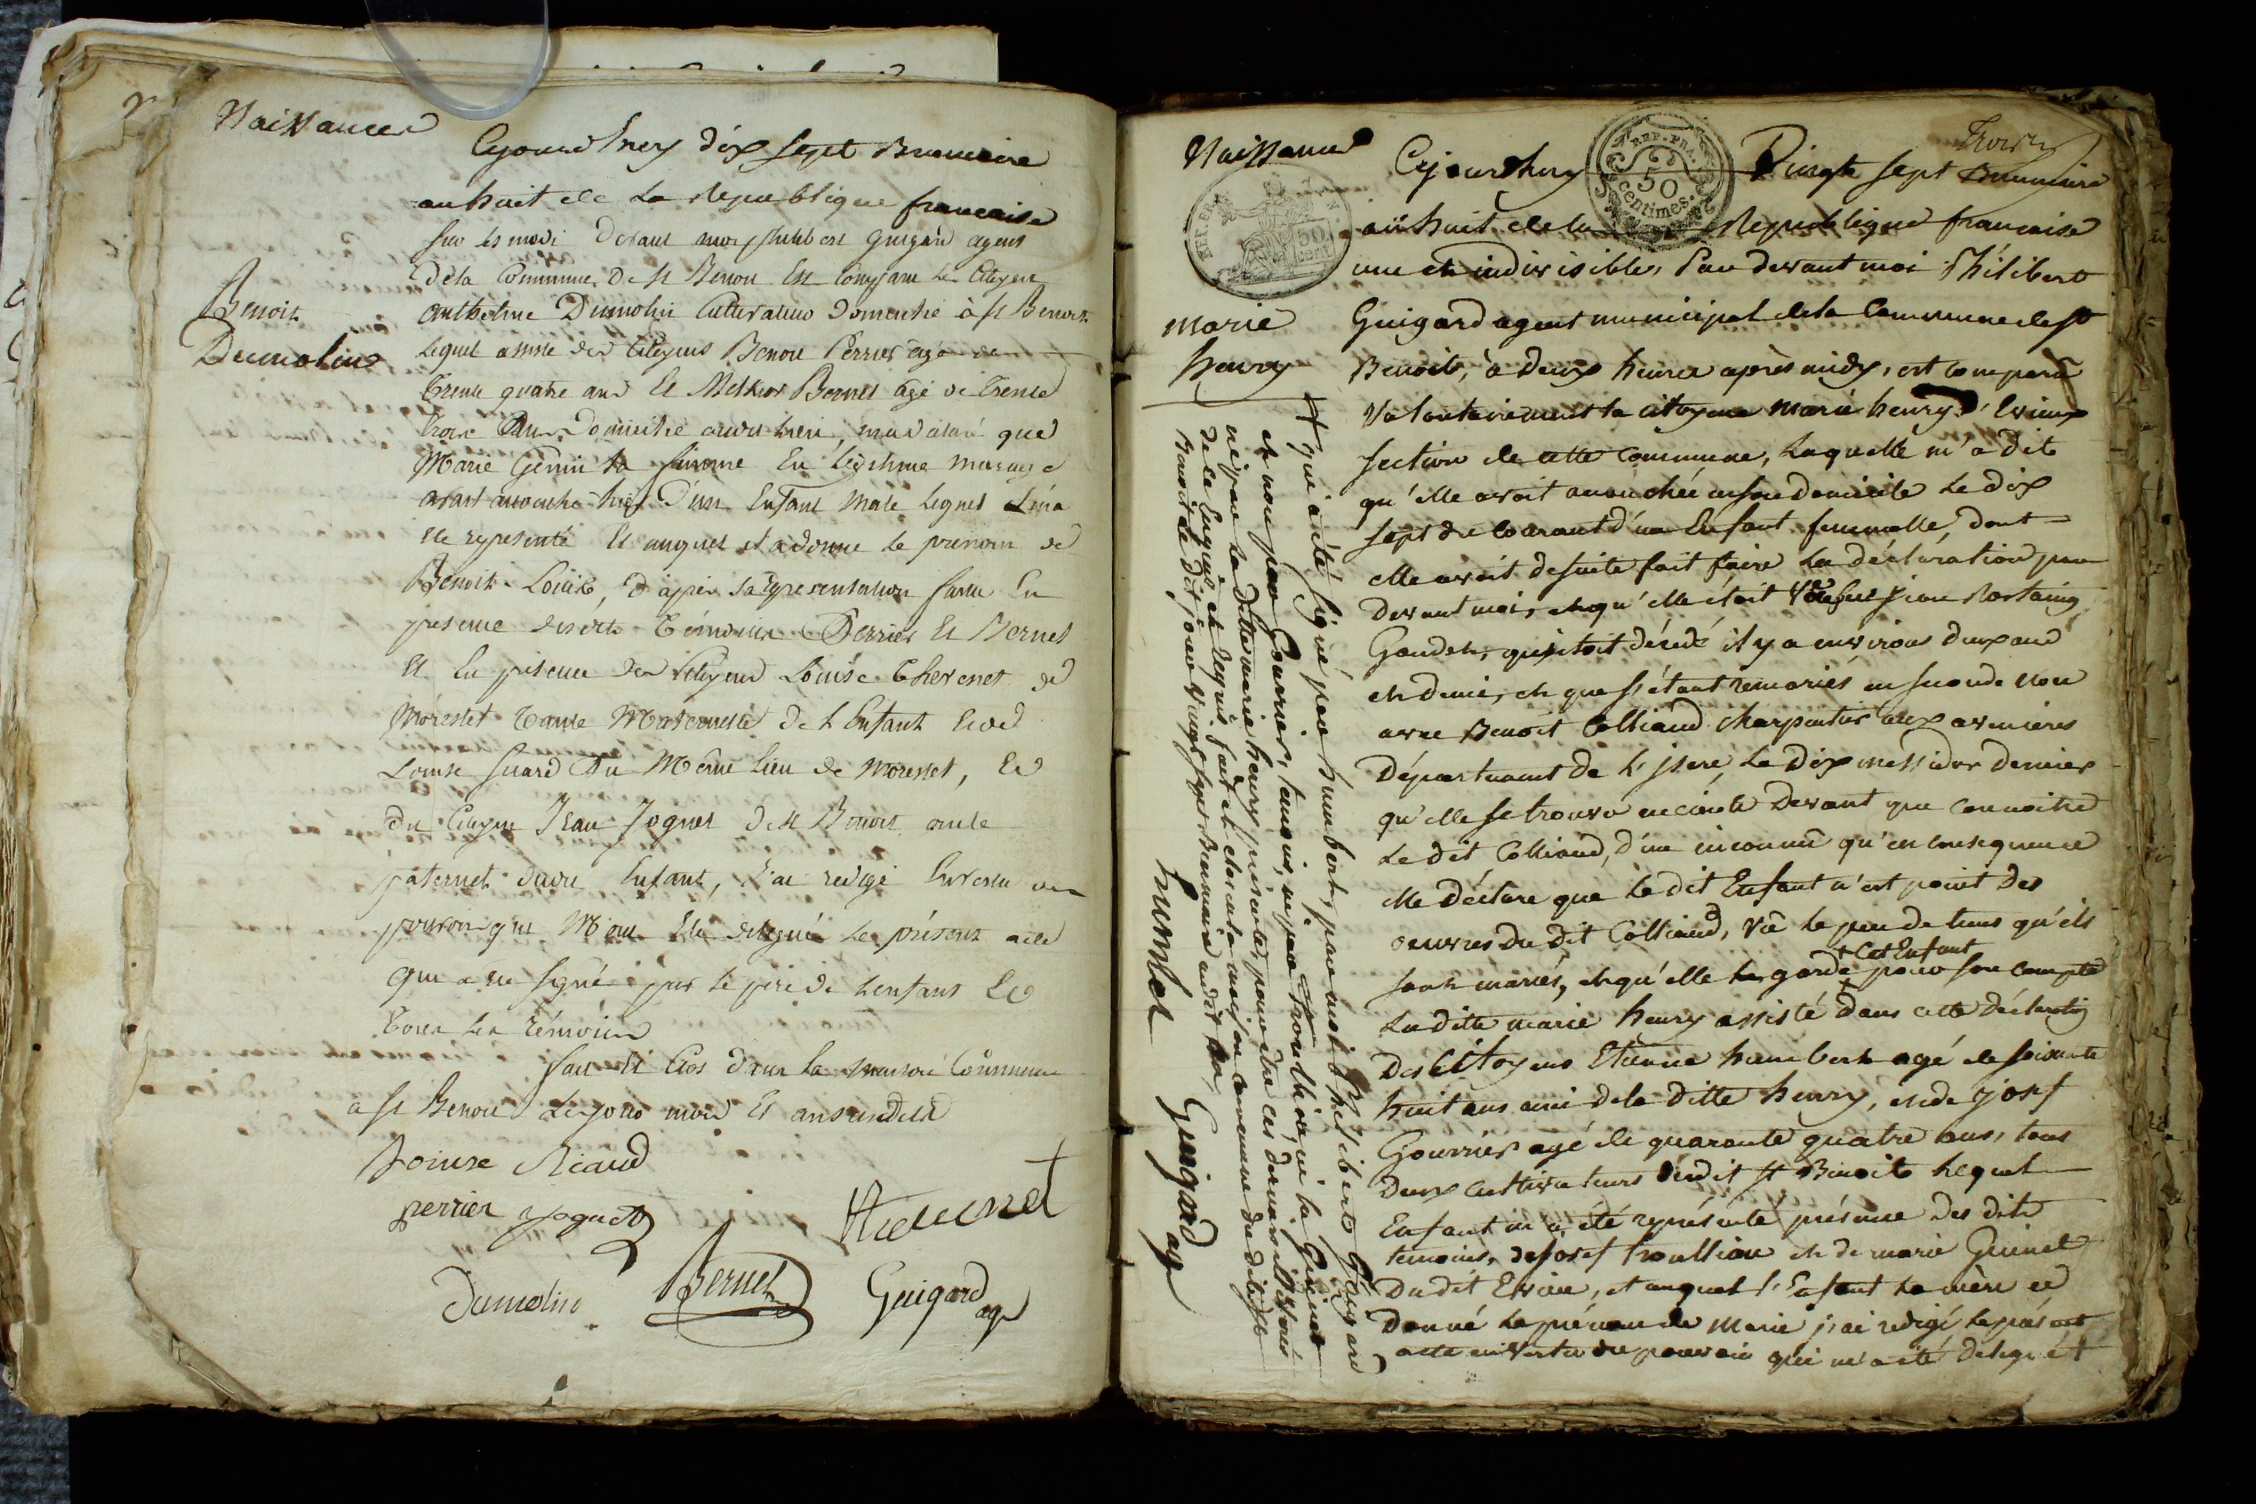 Naissances
Cejourdhuy dix sept Brumaire
an huit de la Republique francaise
sur les midi Devant moy philibert Guigard agent
de la Commune De St Benoit Est Comparu le Citoyen
Benoit
Dumolin
anthelme Dumolin Cultivateur Domicilié à St Benoit
lequel assisté des Citoyens Benoit Perrier agé de
trente quatre ans Et Melkior Bernet agé de trente
trois ans Domicilié audit lieu, m'a déclaré que
Marie Genin sa femme En légitime mariage
avait accouché hier D'un Enfant Male lequel il m'a
été representé Et auquel il a donné le prénom de
Benoit Louis, D'après la représentation faitte En
presence desdits témoins Perrier Et Bernet
Et En présence des Citoyens Louise Chevenet de
Morestel tante Maternelle De l'Enfant Et de
Louise Suard Du Même lieu de Morestel, Et
du Citoyen Jean Joguet De St Benoit oncle
paternel dudit Enfant, J'ai redigé En vertu des
pouvoirs qui M'ont Eté delegués le présent acte
que a été signé par le père de l'enfant Et
tous les témoins
fait Et Clos dans la maison Commune
a St Benoit le jour mois Et an susdits
Louise Riaud
perrier Joguet
Dumolin Bernet Guigard ag
Naissance
Troisr
REP. FRA.
50
centimes.
50
cent
Cejourdhuy Vingt sept Brumaire
an huit de la Republique francaise
une et indivisible, Par devant moi Philibert
marie
henry
Guigard agent municipal de la Commune de St
Benoit, à deux heures après midy, est comparu
Volontairement la citoyenne marie henry d'Evieux
section de cette Commune, Laquelle m'a dit
qu'elle avoit accouchée en son domicile le dix
sept du courant d'un Enfant femmelle, dont
elle avoit de suite fait faire La déclaration par
devant moi, et qu'elle étoit Veuve Jean Rostaing
Gaudet, qui étoit décédé il y a environ deux ans
et demi, et que s'étant remariés en seconde nou
avec Benoit Colliaud charpentier aux avenieres
Département de L'isere, Le Dix messidor dernier
qu'elle se trouva enceinte Devant que connoitre
Le dit Colliaud, d'un inconnu qu'en consequence
elle déclare que le dit Enfant n'est point Des
oeuvres du dit Colliaud, Vû le peu de tems qu'ils
+ Cet Enfant
sont mariés, et qu'elle le garde pour son compte
La ditte marie henry assisté dans cette déclaration
Des Citoyens Etienne humbert agé de soixante
huit ans ami de la ditte henry, et de josef
Gourrier agé de quarante quatre ans, tous
Deux cultivateurs dudit St Benoit Lequel
Enfant m'a été représenté présence des dits
temoins, de josef trouillion et de marie Guinet
Du dit Evieu, et auquel l'Enfant la mère a
Donné le prénom de Marie j'ai redigé le présent
acte en Vertu du pouvoir qui m'a été delegué +
+ qui a été signé par humbert, par moi Philibert Guigard
et non par Gourrier, temoin, ni par trouillion, ni la Guinet
ni par la ditte marie henry présente, pour être ces derniers illitéré
de ce Enquis et requis fait et clos en la maison commune du dit St
Benoit Le dit jour Vingt sept Brumaire audit an
humber Guigard ag